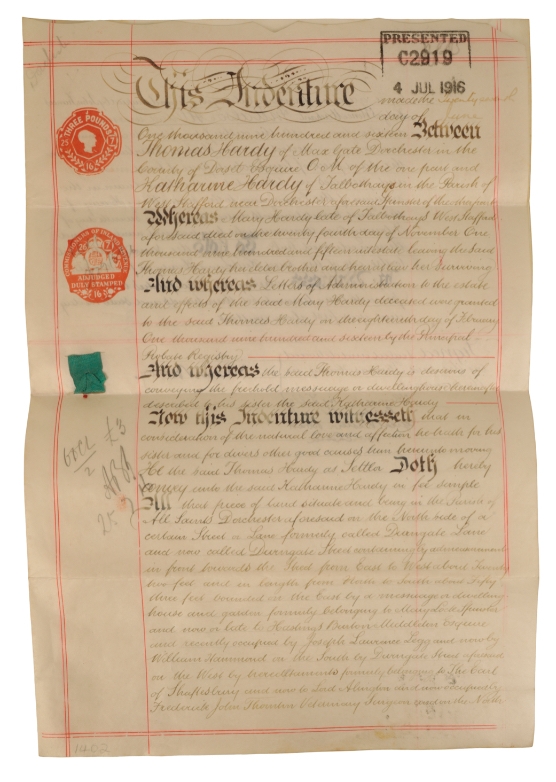 PRESENTED
C2919
4 JUL 1916
This Indenture
made the
day of June
One thousand nine hundred and sixteen Between
Thomas Hardy of Max Gate Dorchester in the
County of Dorset Esquire O.M. of the one part and
Katharine Hardy of Talbothays in the Parish of
West Stafford near Dorchester aforesaid Spinster of the other part
Whereas Mary Hardy late of Talbothays West Stafford
aforesaid died on the twenty fourth day of November One
thousand nine hundred and fifteen intestate leaving the said
Thomas Hardy her brother and heir at law her surviving
And whereas Letters of Administration to the estate
and effects of the said Mary Hardy deceased were granted
to the said Thomas Hardy on the eighteenth day of February
One thousand nine hundred and sixteen by the Principal
Probate Registry
And whereas the said Thomas Hardy is desirous of
conveying the freehold messuage or dwellinghouse hereinafter
described to his sister the said Katharine Hardy
Now this Indenture witnesseth that in
consideration of the natural love and affection he hath for his
sister and for divers other good causes him hereunto moving
He the said Thomas Hardy as Settlor Doth hereby
convey unto the said Katharine Hardy in fee simple
All that piece of land situate and being in the Parish of
All Saints Dorchester aforesaid on the North side of a
certain Street or Lane formerly called Durngate Lane
and now called Durngate Street containing by admeasurement
in front towards the Street from East to West about Twenty
two feet and in length from North to South about Fifty
three feet bounded on the East by a messuage or dwelling
house and garden formerly belonging to Spinster
and now or late to Hastings Burton Middleton Esquire
and recently occupied by Joseph Laurence Legg and now by
William Hammond on the South by Durngate Street aforesaid
on the West by hereditaments formerly belonging to The Earl
of Shaftesbury and now to Lord Alington and now occupied by
Frederick John Thornton Veterinary Surgeon and on the North
THREE POUNDS
25
16
COMMISSIONERS OF INLAND REVENUE
26
ADJUDGED
DULY STAMPED
16
£3
2
1402